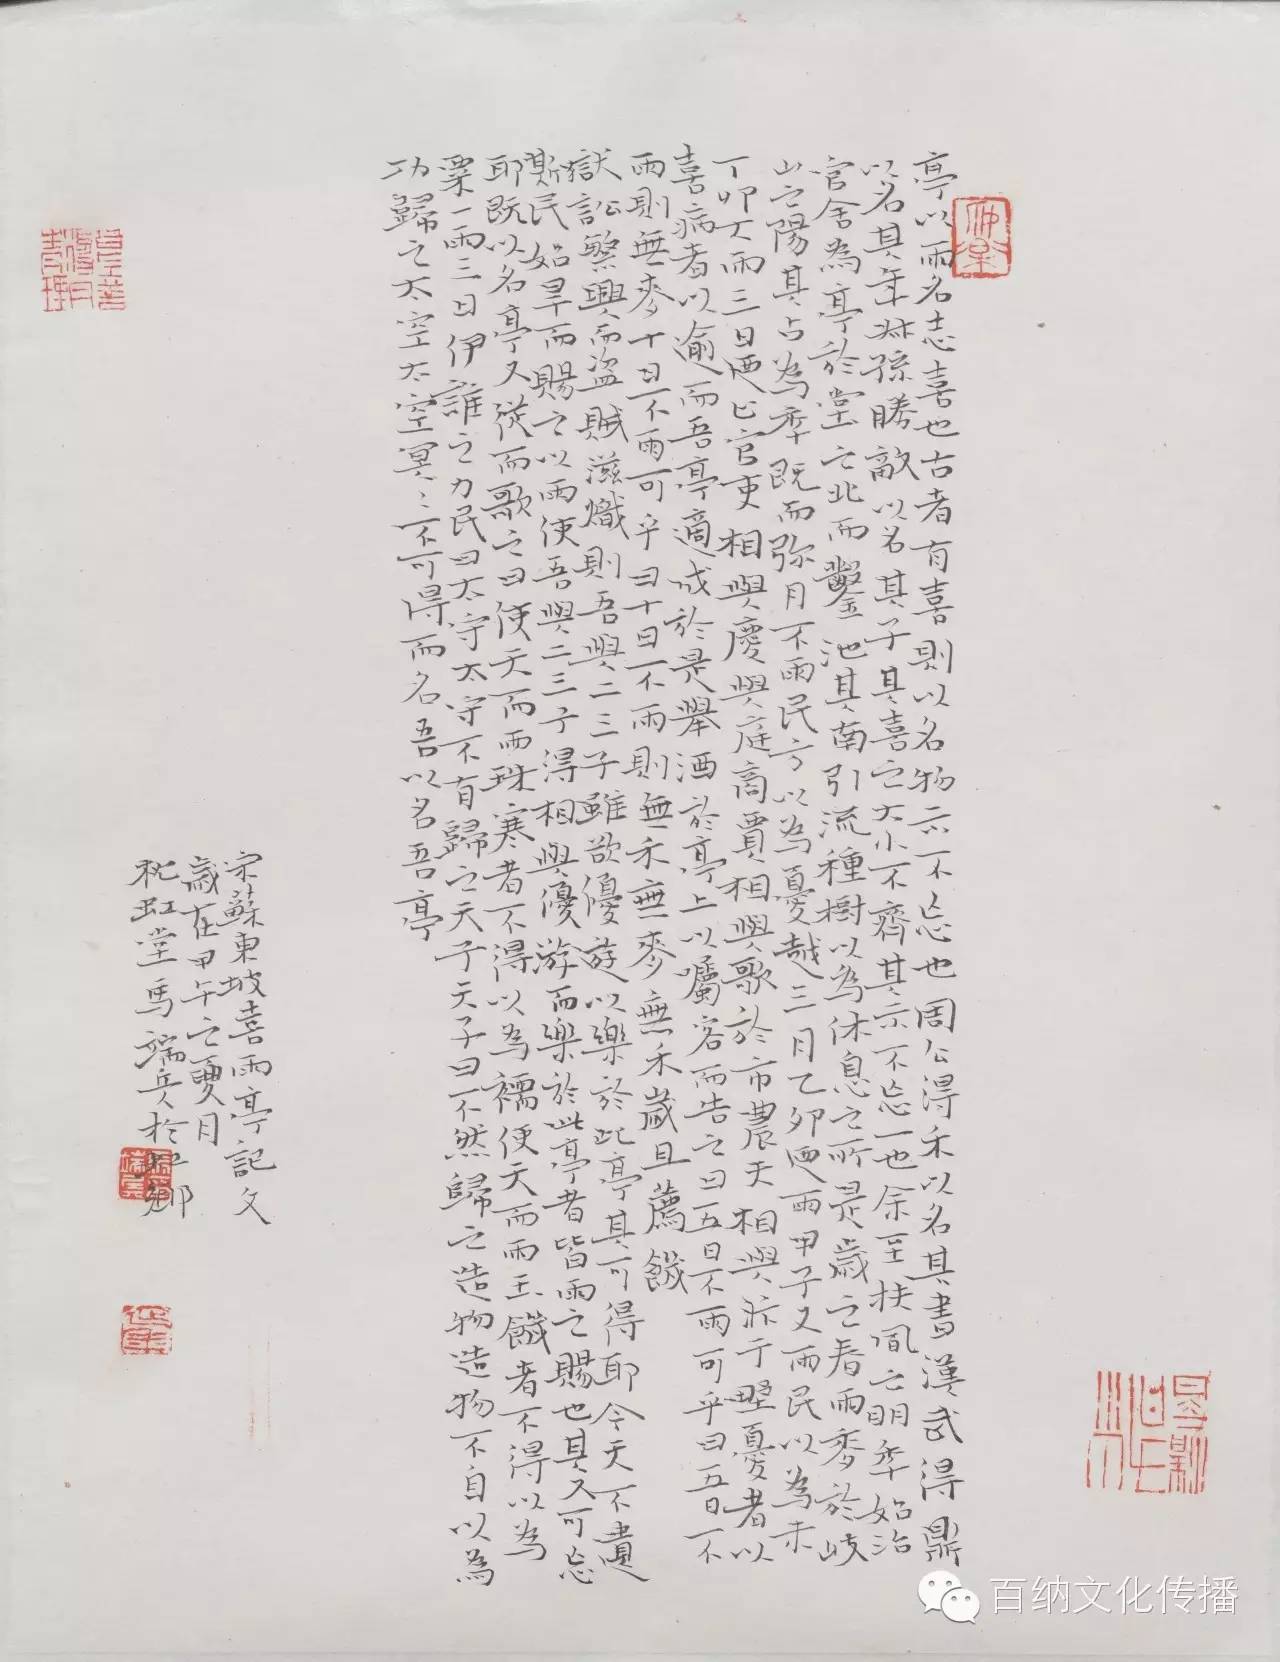 亭以雨名志喜也古者有喜則以名物示不忘也周公得禾以名其書漢武得鼎
以名其年叔孫勝敵以名其子其喜之大小不齊其示不忘一也余至扶風之明年始治
官舍為亭於堂之北而鑿池其南引流種樹以為休息之所是歲之春雨麥於岐
山之陽其占為年既而弥月不雨民方以為憂越三月乙卯迺雨甲子又雨民以為未
丁卯大雨三日迺止官吏相與慶與庭商賈相與歌於市農夫相與忭于野憂者以
喜病者以逾而吾亭適成於是舉酒於亭上以囑客而告之曰五日不雨可乎曰五日不
雨則無麥十日不雨可乎曰十日不雨則無禾無麥無禾歲且薦饑
獄訟繁興而盗賊滋熾則吾與二三子雖欲優遊以樂於此亭其可得耶今天不遺
斯民始旱而賜之以雨使吾與二三子得相與優游而樂於此亭者皆雨之賜也其又可忘
耶既以名亭又從而歌之曰使天而雨珠寒者不得以為襦使天而雨玉饑者不得以為
粟一雨三日伊誰之力民曰太守太守不有歸之天子天子曰不然歸之造物造物不自以為
功歸之太空太空冥〻不可得而名吾以名吾亭
宋蘇東坡喜雨亭記文
歲在甲午之夏月
虹堂馬端兵於鄉
百纳文化传播